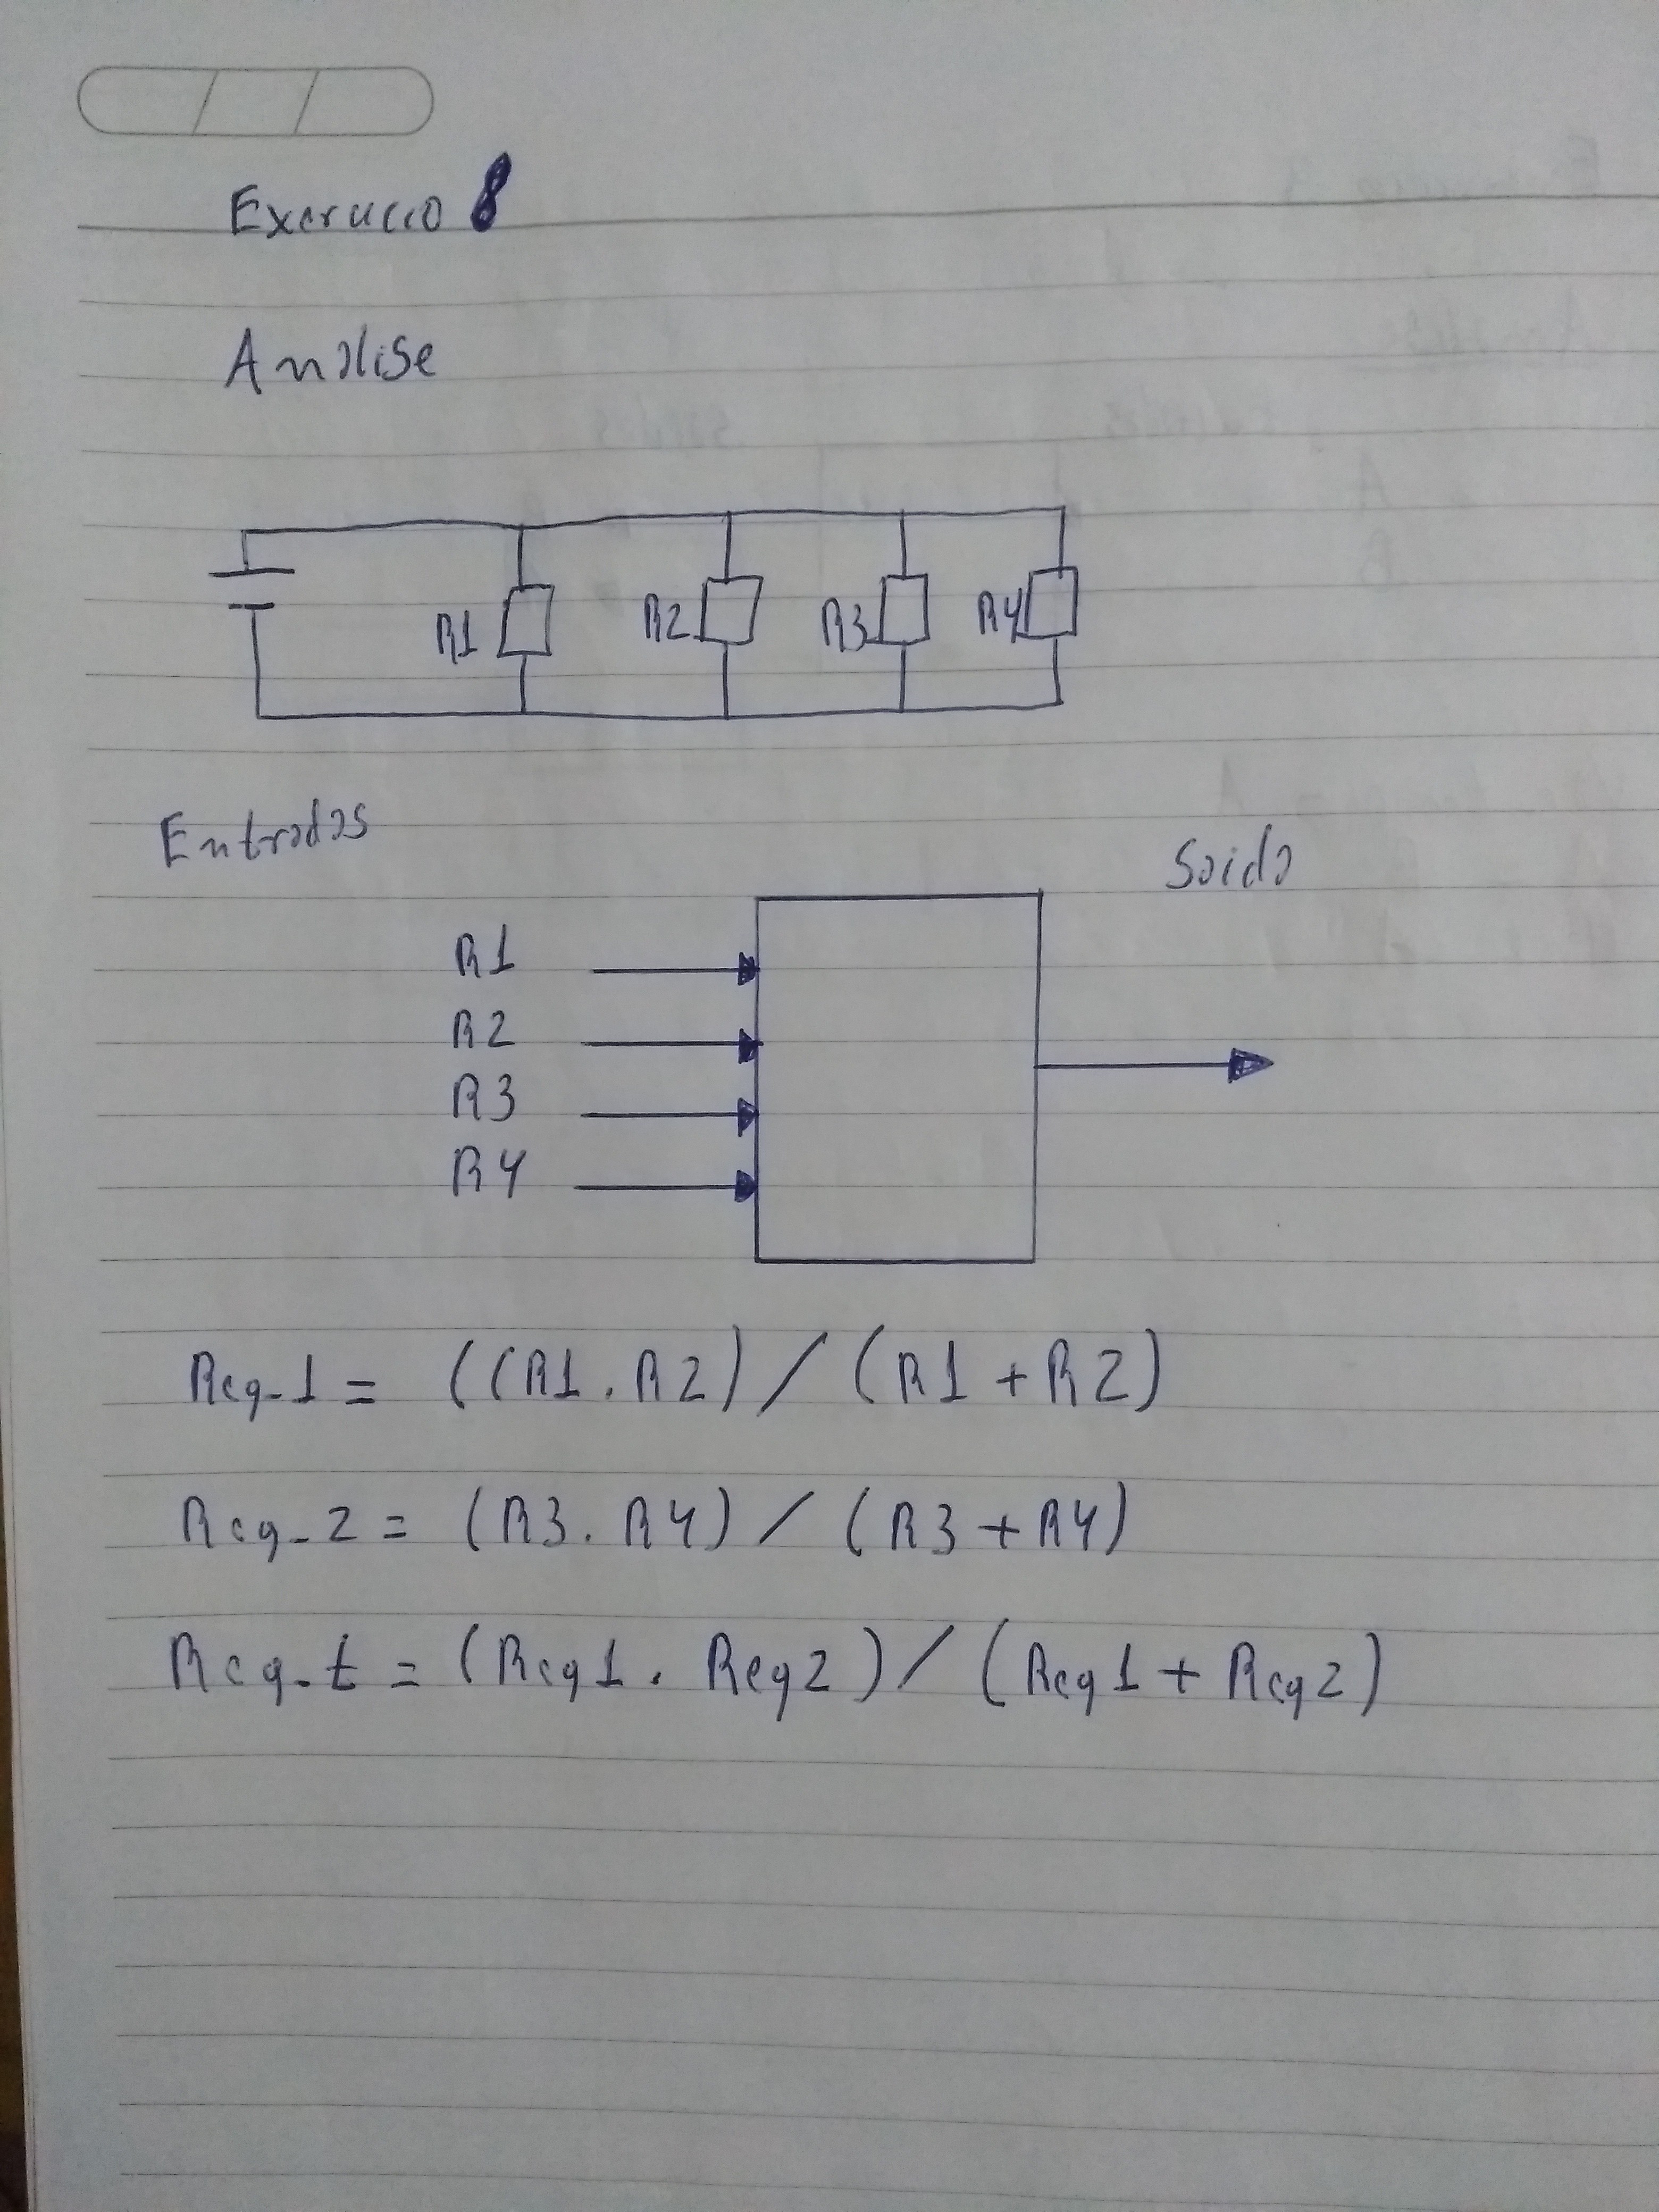 Exercicio 8
Analise
R1 R2 R3 R4
Entradas
Saida
R1
R2
R3
R4
Req_1 = ((R1 . R2) / (R1 + R2)
Req_2 = (R3 . R4) / (R3 + R4)
Req_t = (Req1 . Req2) / (Req1 + Req2)